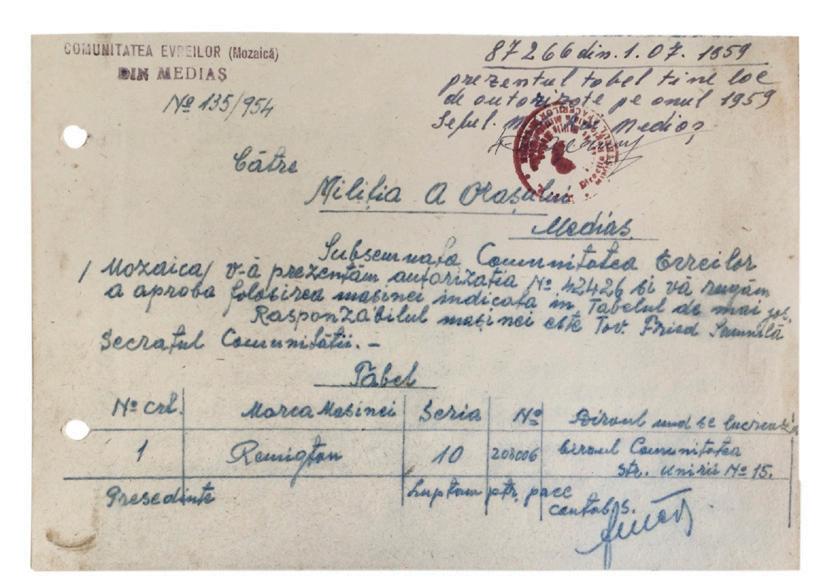 COMUNITATEA EVREILOR (Mozaică)
DIN MEDIAȘ
Nº 135/954
87266 din. 1. 07. 1959
prezentul tabel tine loc
de autorizate pe anul 1959
Șeful Mediaș
Către
Miliția A Orașului
Mediaș
Subsemnata Comunitatea Evreilor
/Mozaica/ v-ă prezentăm autorizatia Nº 42426 si vă rugăm
a aproba folosirea masinei indicata in Tabelul de mai jos.
Rasponzabilul mașinei este Tov. Fried
Secratul Comunității. -
Tăbel
Nº crt. Marca Masinei Seria Nº Biroul und se lucrează
1 Remigton 10 203006 biroul Comunitatea
str. Unirii Nº 15.
Presedinte Luptam ptr. pace contabs.